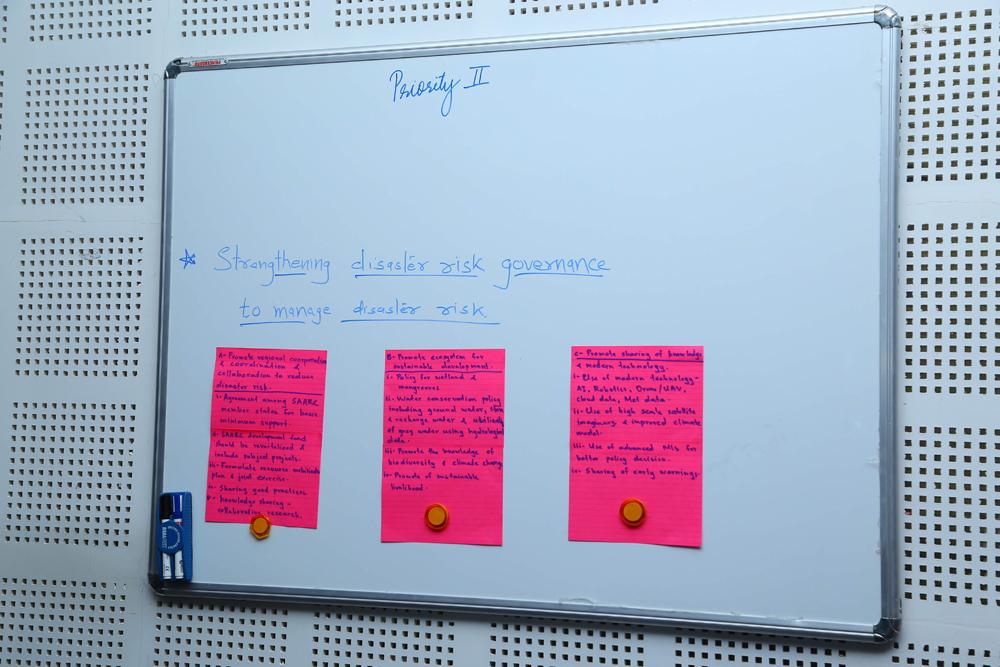 Priority II
☆ Strengthening disaster risk governance
to manage disaster risk.
A- Promote regional cooperation
& coordination &
collaboration to reduce
disaster risk.
i- Agreement among SAARC
member states for basic
minimum support.
ii- SAARC development fund
should be revitalized &
include subject projects.
iii- Formulate resource mobilization
plan & joint exercise.
iv- Sharing good practices
v- knowledge sharing -
collaborative research.
B- Promote ecosystem for
sustainable development.
i- Policy for wetland &
mangroves
ii- Water conservation policy
including ground water,
& recharge water &
of grey water using hydrological
data.
iii- Promote the knowledge of
biodiversity & climate change
iv- Promote of sustainable
livelihood.
C- Promote sharing of knowledge
& modern technology.
i- Use of modern technology-
AI, Robotics, Dron/UAV,
cloud data, Met data.
ii- Use of high scale satellite
imaginery & improved climate
model.
iii- Use of advanced for
better policy decision.
iv- Sharing of early warnings.